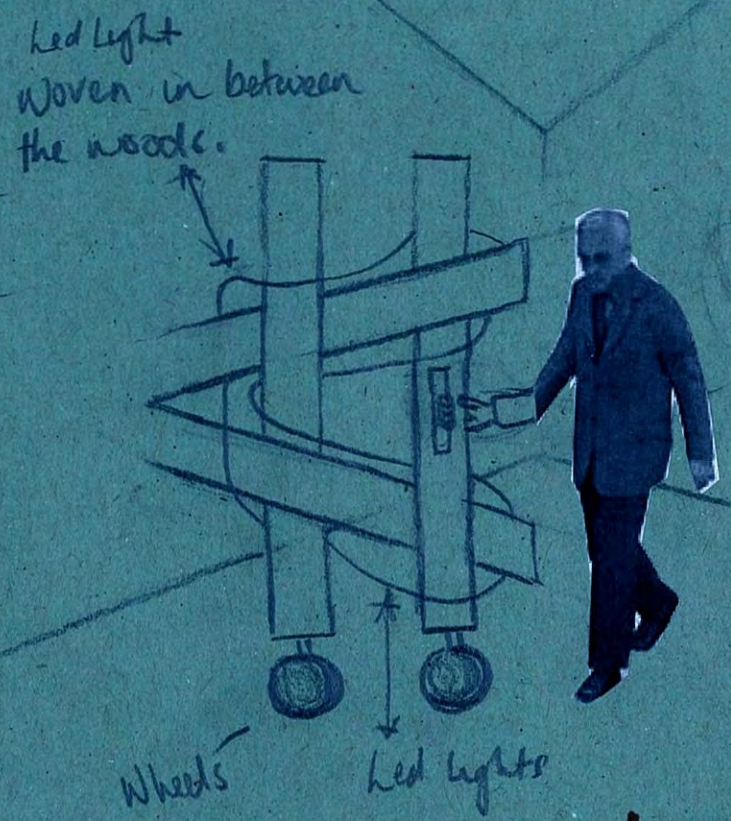 Led Light
Woven in between
the woods.
Wheels
Led lights